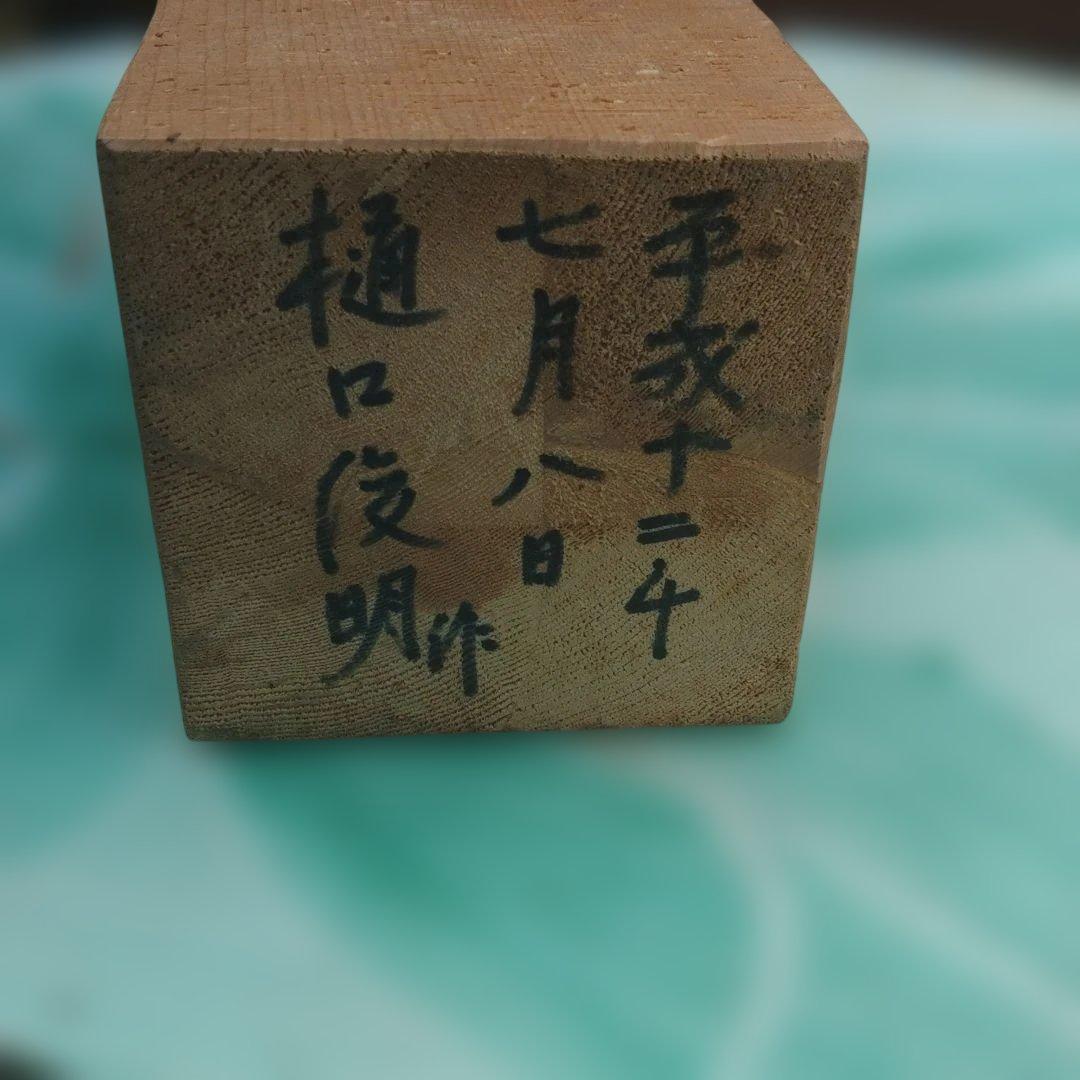 平成十二年
七月八日
樋口俊明作